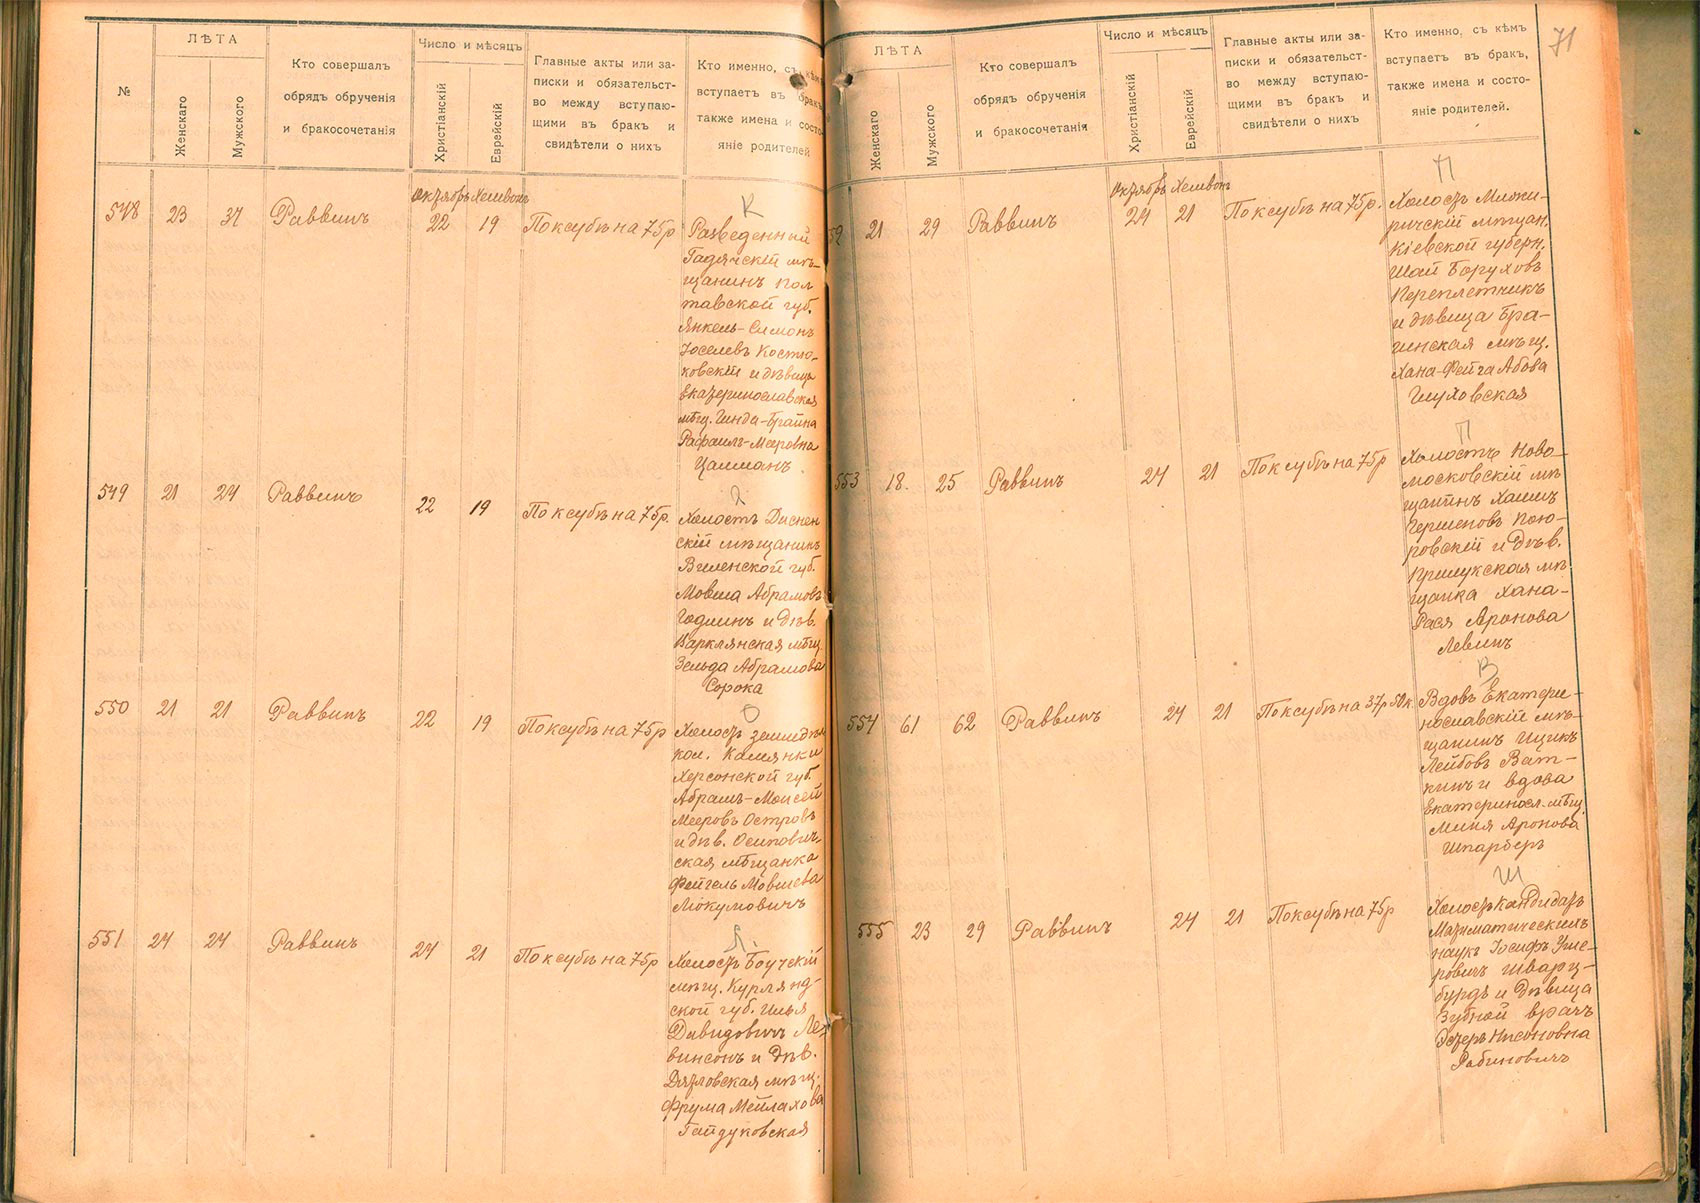 №
ЛѢТА
Женскаго
Мужского
Кто совершалъ
обрядъ обрученія
и бракосочетанія
Число и мѣсяцъ
Христіанскій
Еврейскій
Главные акты или за-
писки и обязательст-
во между вступаю-
щими въ бракъ и
свидѣтели о нихъ
Кто именно, съ кѣмъ
вступаетъ въ бракъ,
также имена и состо-
яніе родителей
Октябрь Хешвонъ
К
548 23 37 Раввинъ 22 19 По ксубѣ на 75 р
Разведенный
Гадячскій мѣ-
щанинъ Пол
тавской губ.
Янкель-Симонъ
Іоселевъ Костю-
ковскій и дѣвица
Екатеринославская
мѣщ. Гинда-Брайна
Рафаилъ-Мееровна
Цалманъ.
549 21 24 Раввинъ 22 19 По ксубѣ на 75 р.
Холостъ Диснен
скій мѣщанинъ
Виленской губ.
Мовша Абрамовъ
Годлинъ и дѣв.
Варклянская мѣщ.
Зельда Абрамова
Сорока
О
550 21 21 Раввинъ 22 19 По ксубѣ на 75 р
Холостъ
кол. Камянки
Херсонской губ.
Абрамъ-Моисей
Мееровъ Островъ
и дѣв. Осипович-
ская мѣщанка
Фейгель Мовшева
Мокумовичъ
Л.
551 24 24 Раввинъ 24 21 По ксубѣ на 75 р
Холостъ
мѣщ. Курлянд-
ской губ. Илья
Давидовичъ Ле-
винсонъ и дѣв.
Дятловская мѣщ.
Фрума Мейлахова
Гайдуковская
71
ЛѢТА
Женскаго
Мужского
Кто совершалъ
обрядъ обрученія
и бракосочетанія
Число и мѣсяцъ
Христіанскій
Еврейскій
Главные акты или за-
писки и обязательст-
во между вступаю-
щими въ бракъ и
свидѣтели о нихъ
Кто именно, съ кѣмъ
вступаетъ въ бракъ,
также имена и состо-
яніе родителей.
Октябрь Хешвонъ
П
52 21 29 Раввинъ 24 21 По ксубѣ на 75 р.
Холостъ Межи-
ричскій мѣщан.
Кіевской губерн.
Шай Боруховъ
Переплетчикъ
и дѣвица Бра-
гинская мѣщ.
Хана-Фейга Абова
Глуховская
П
553 18. 25 Раввинъ 24 21 По ксубѣ на 75 р
Холостъ Ново-
московскій мѣ
щанинъ Хаимъ
Гершеновъ
ровскій и дѣв.
Прилукская мѣ
щанка Хана-
Рася Аронова
Левинъ
В
554 61 62 Раввинъ 24 21 По ксубѣ на 37 р 50 к.
Вдовъ Екатери-
нославскій мѣ-
щанинъ Ицикъ
Лейбовъ Ват-
кинъ и вдова
Екатериносл. мѣщ.
Миня Аронова
Шпарберъ
Ш
555 23 29 Раввинъ 24 21 По ксубѣ на 75 р
Холостъ кандидатъ
Математическихъ
наукъ Іосифъ Уше-
ровичъ Шварц-
бурдъ и дѣвица
Зубной врачъ
Эстеръ Нисоновна
Рабиновичъ